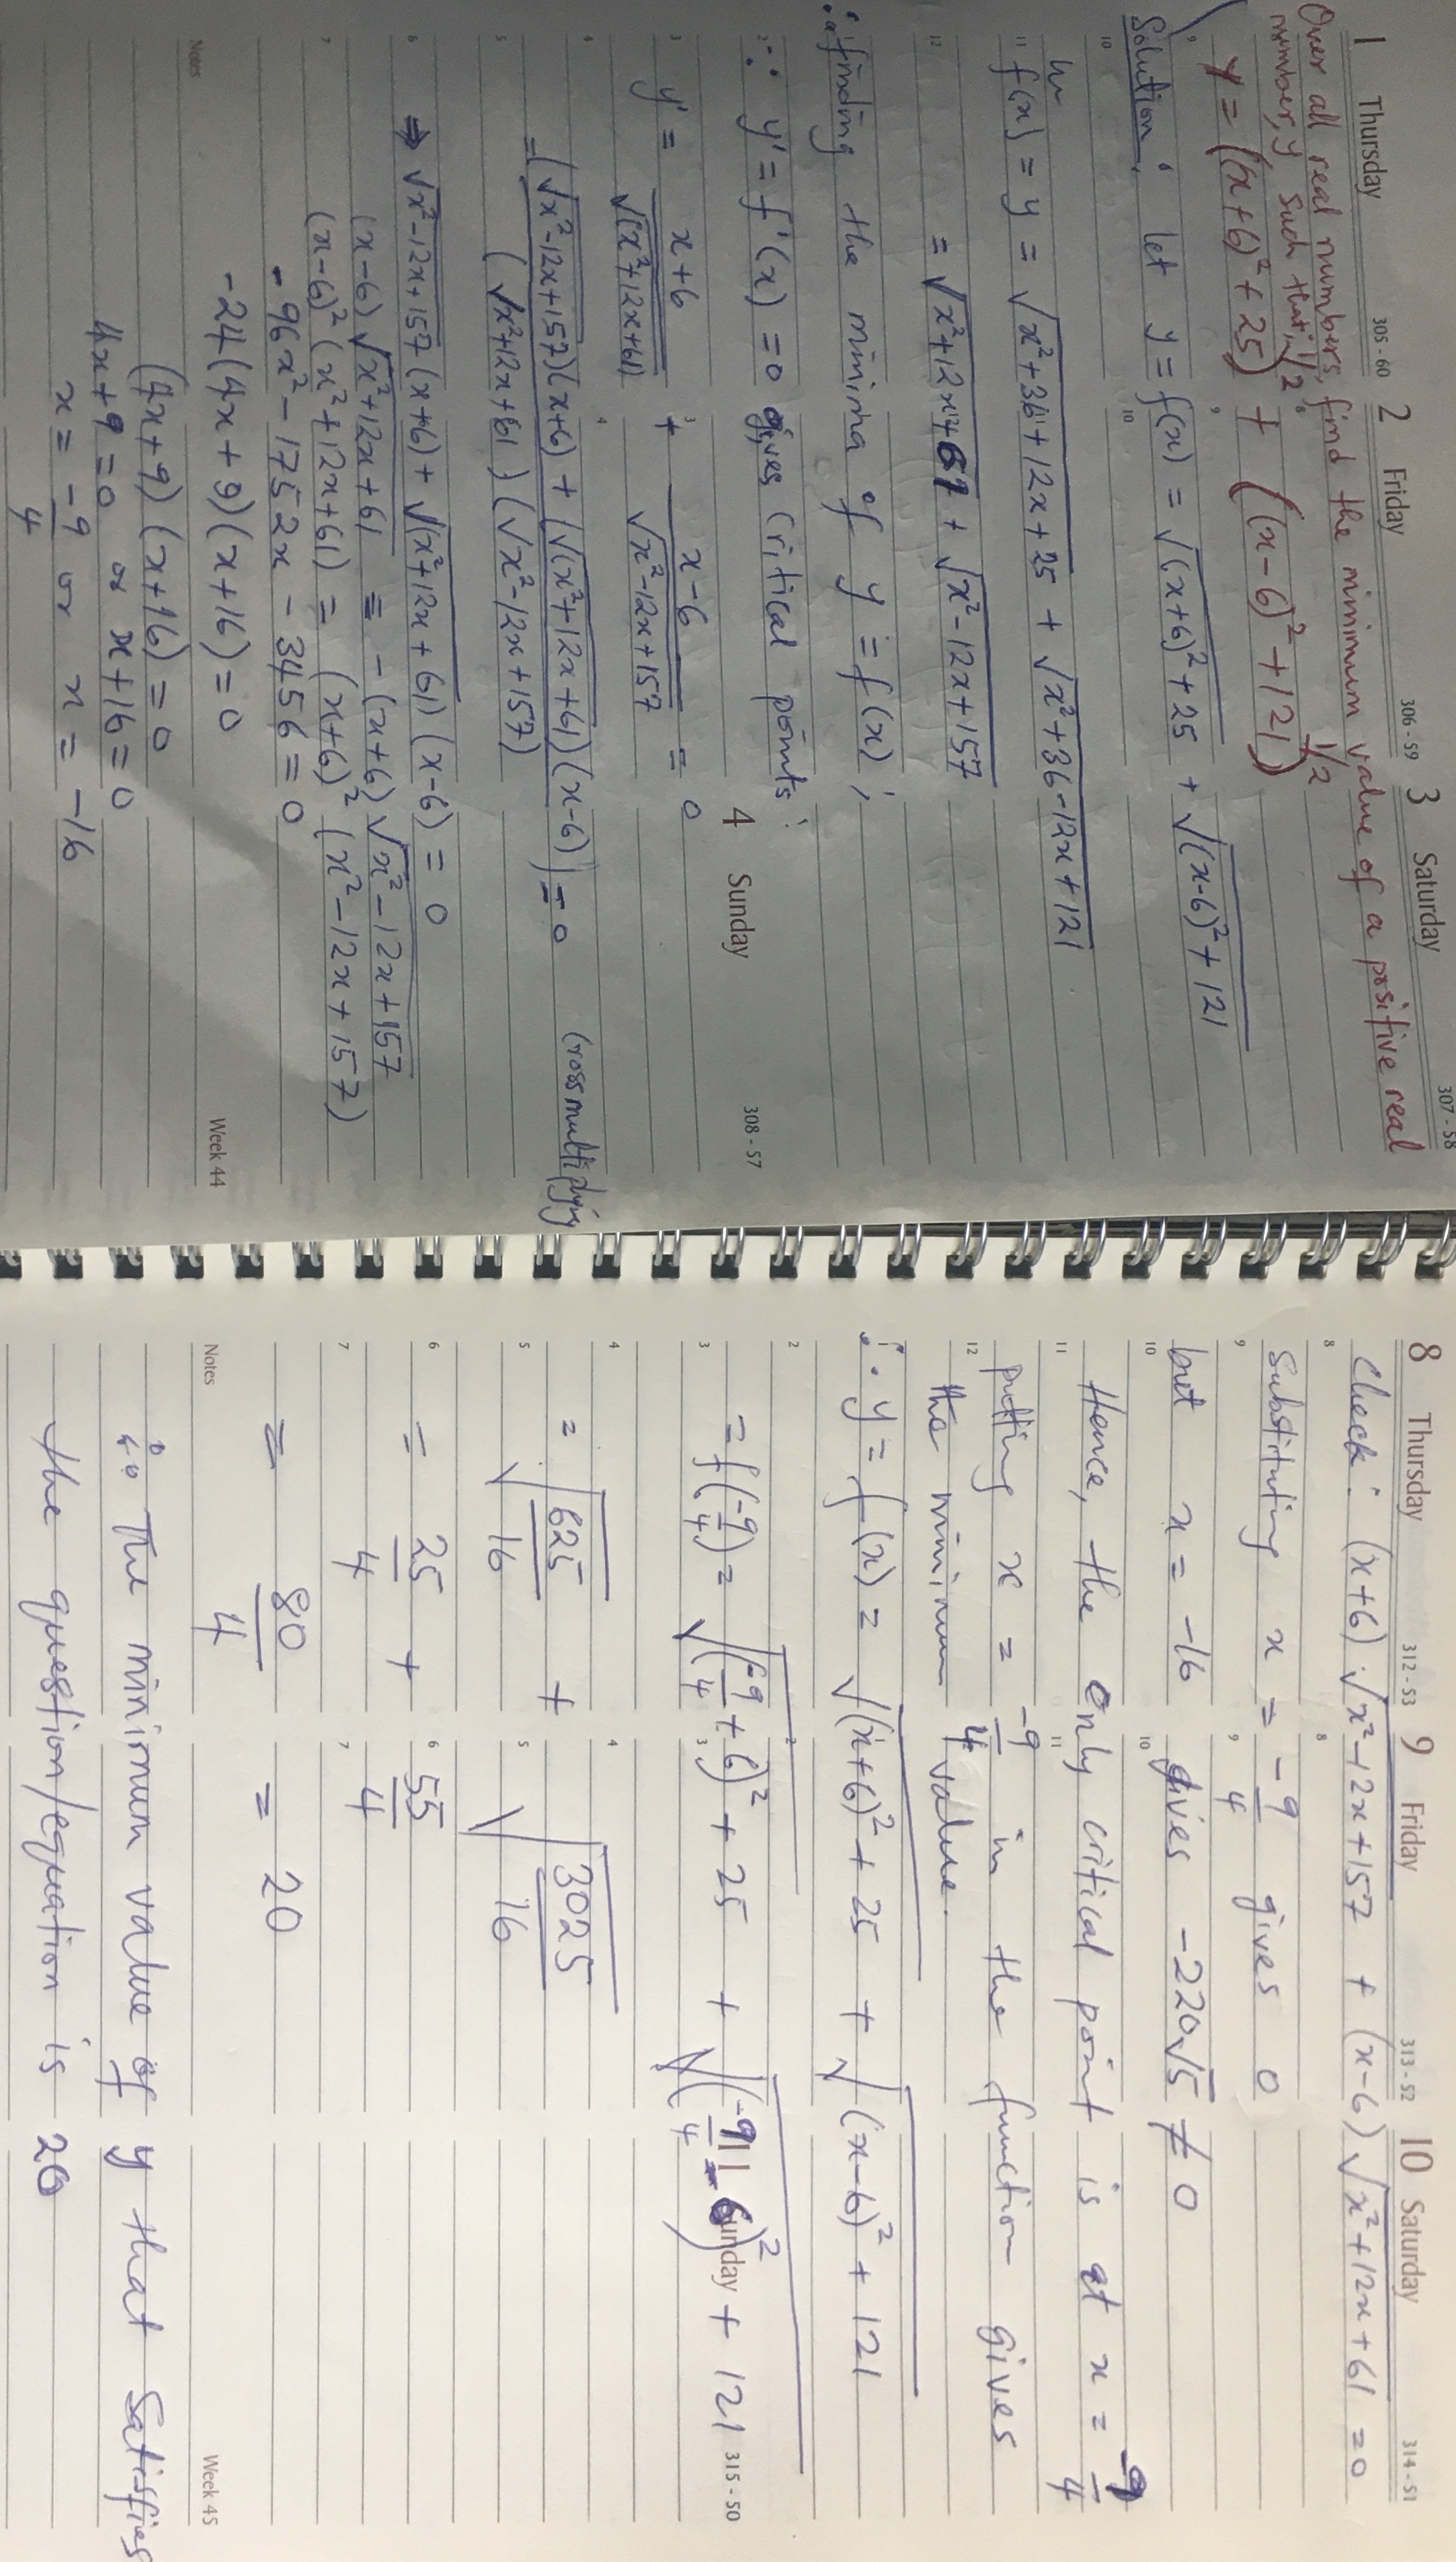 1 Thursday 305 - 60 2 Friday 306 - 59 3 Saturday 307 - 58
Over all real numbers, find the minimum value of a positive real
number, y such that,
y = ((x+6)² + 25)^1/2 + ((x-6)² + 121)^1/2
Solution: let y = f(x) = √(x+6)² + 25 + √(x-6)² + 121
f(x) = y = √x² + 36 + 12x + 25 + √x² + 36 - 12x + 121
= √x² + 12x + 61 + √x² - 12x + 157
∴ finding the minima of y = f(x);
∵ y' = f'(x) = 0 gives critical points:
4 Sunday 308 - 57
y' = x+6/√(x²+12x+61) + x-6/√x²-12x+157 = 0
= (√x²-12x+157)(x+6) + (√(x²+12x+61)(x-6)/(√x²+12x+61)(√x²-12x+157) = 0 Crossmultiplying
⇒ √x²-12x+157 (x+6) + √(x²+12x+61) (x-6) = 0
(x-6) √x²+12x+61 = -(x+6) √x²-12x+157
(x-6)² (x²+12x+61) = (x+6)² (x²-12x+157)
-96x² - 1752x - 3456 = 0
-24(4x+9)(x+16) = 0
Notes Week 44
(4x+9)(x+16) = 0
4x+9=0 or x+16=0
x = -9/4 or x = -16
8 Thursday 312 - 53 9 Friday 313 - 52 10 Saturday 314 - 51
Check: (x+6) √x²-12x+157 + (x-6) √x²+12x+61 = 0
Substituting x = -9/4 gives 0
but x = -16 gives -220√5 ≠ 0
Hence, the only critical point is at x = -9/4
putting x = -9/4 in the function gives
the minimum value.
∴ y = f(x) = √(x+6)² + 25 + √(x-6)² + 121
11 Sunday 315 - 50
= f(-9/4) = √(-9/4 + 6)² + 25 + √(-9/4 - 6)² + 121
= √625/16 + √3025/16
= 25/4 + 55/4
= 80/4 = 20
Notes Week 45
∴ The minimum value of y that satisfies
the question/equation is 20